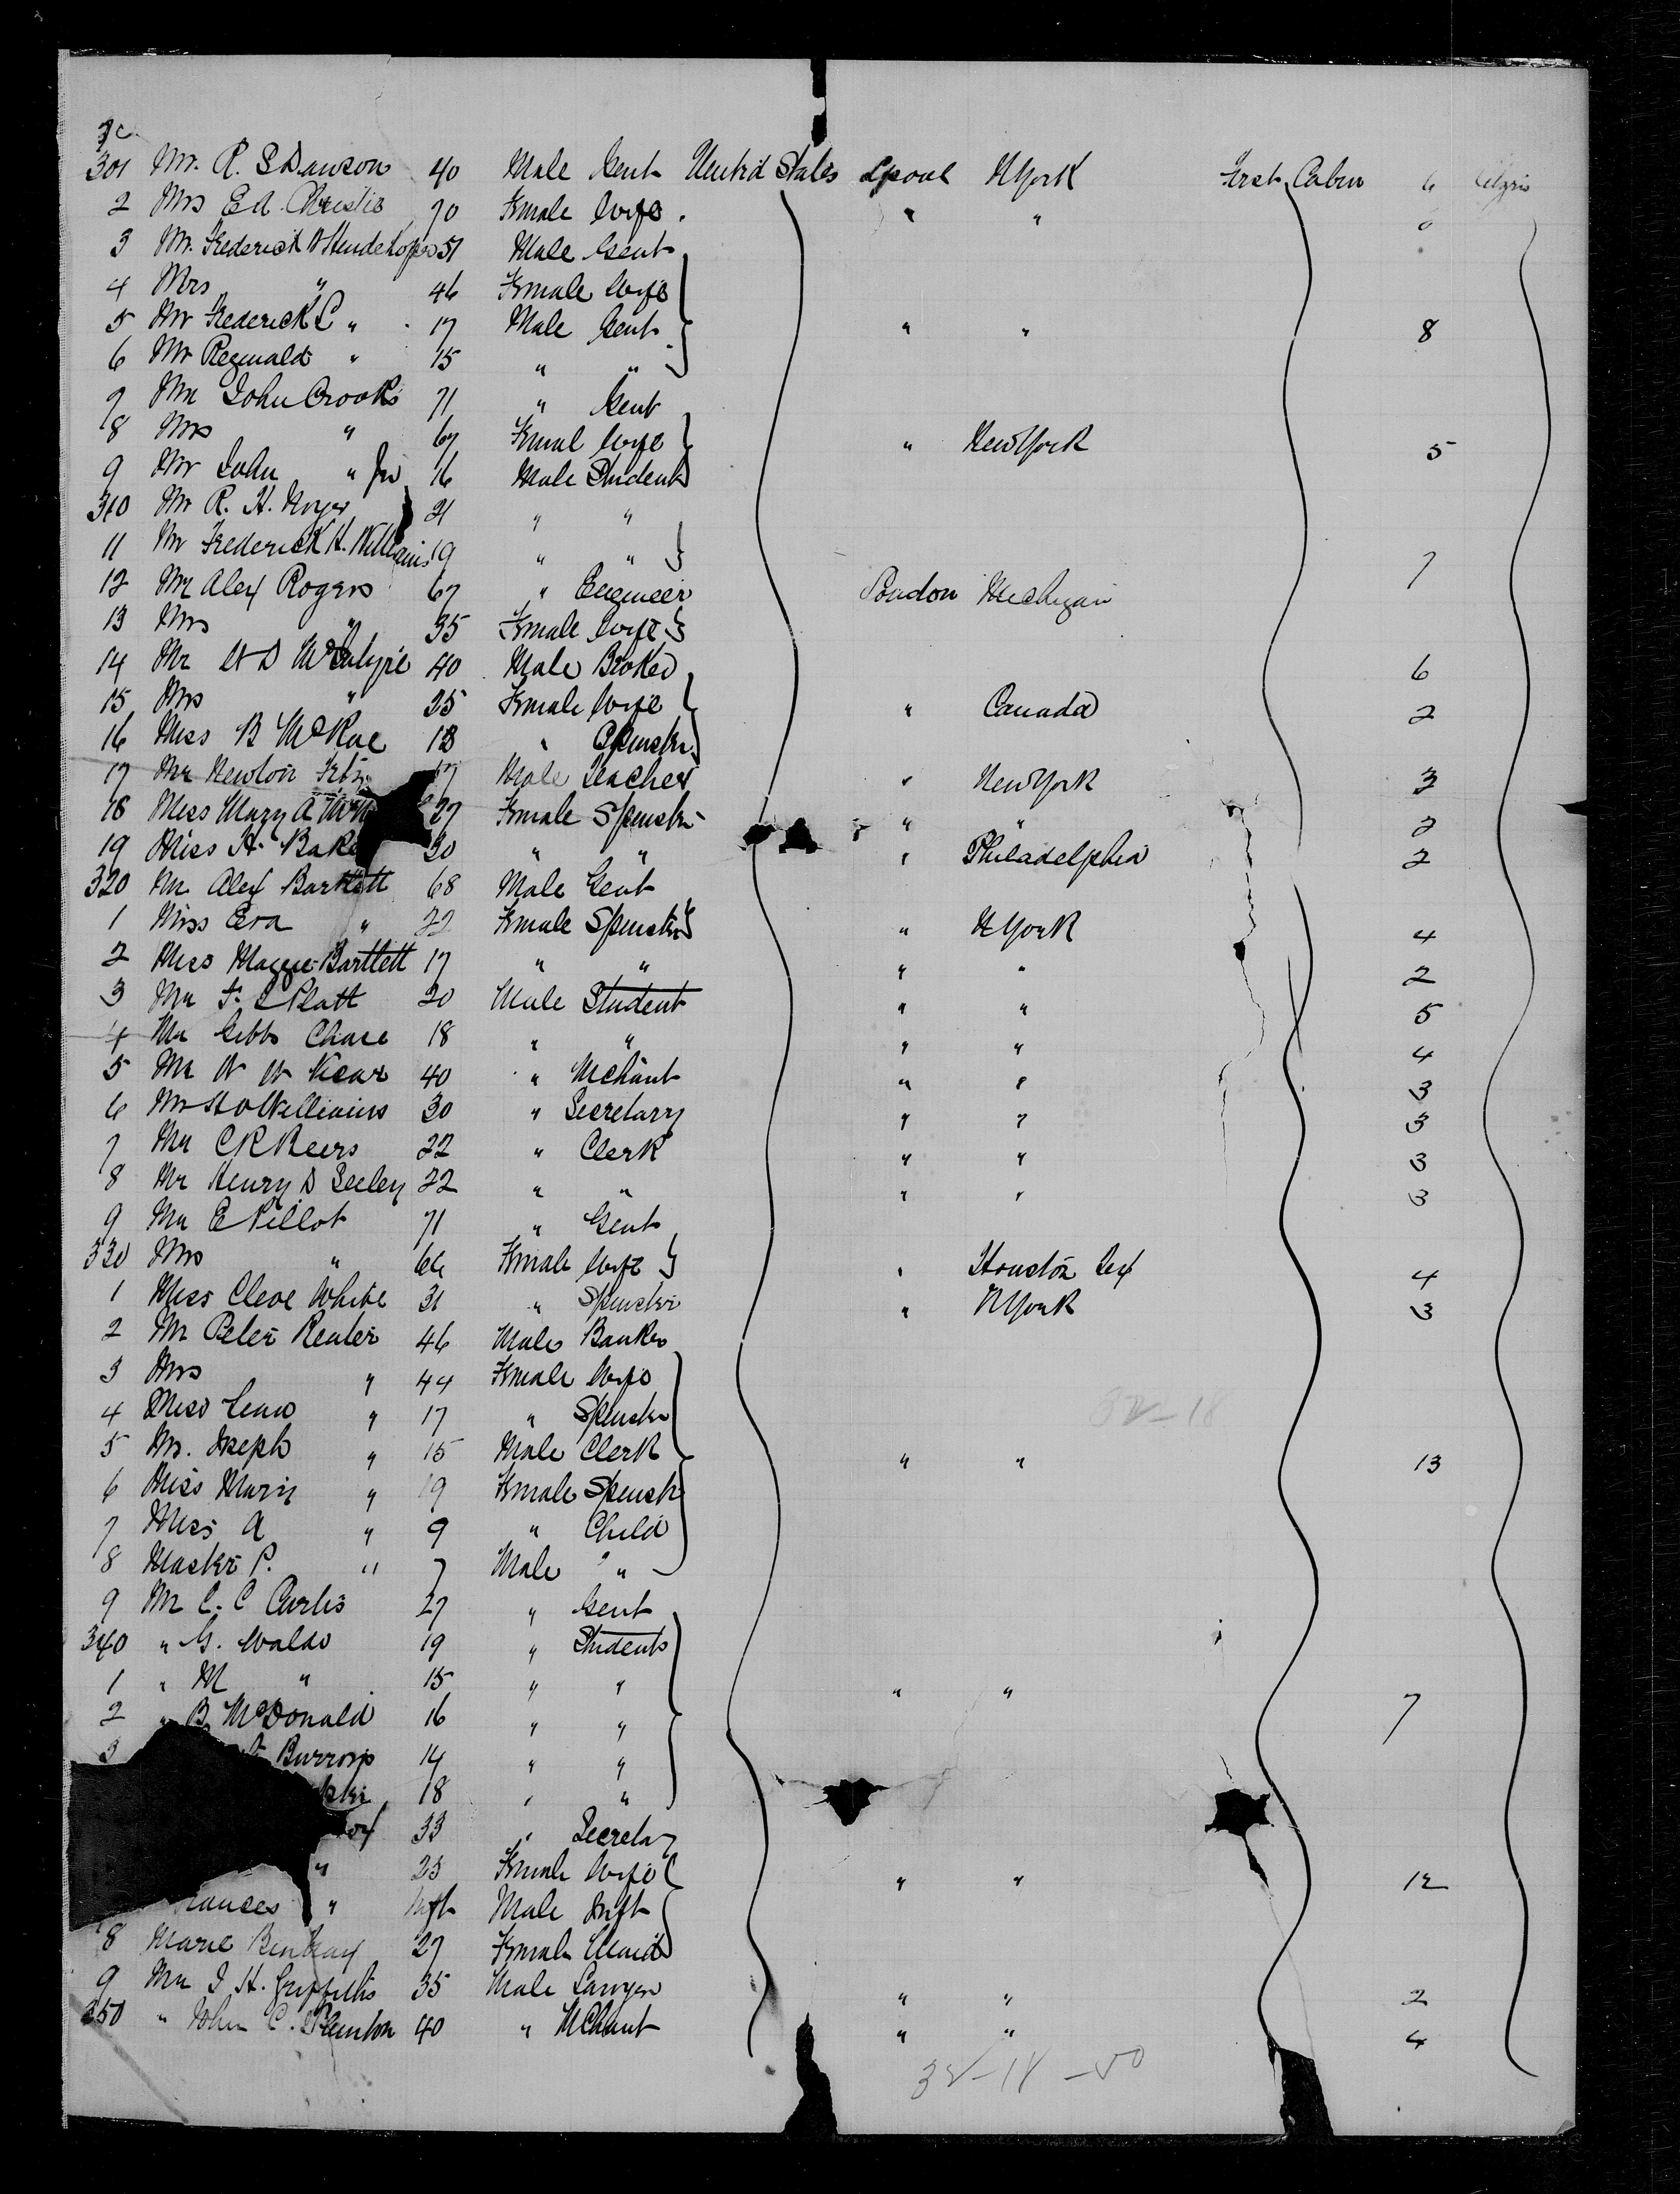 301 Mr. R. S Dawson 40 Male Gent United States Lpool N York First Cabin 6
2 Mrs Ed. Christie 70 Female Wife " "
3 Mr. Frederick 51 Male Gent
4 Mrs " 46 Female Wife
5 Mr Frederick C " 17 Male Gent " " 8
6 Mr Reginald " 15 " "
7 Mr John Crooks 71 " Gent
8 Mrs " 67 Femal Wife " New York 5
9 Mr John " Jr 16 Male Student
310 Mr R. H. Noyes 21 " "
11 Mr Frederick H. Williams 19 " " 7
12 Mr Alex Rogers 67 " Engineer London Michigan
13 Mrs " 35 Female Wife
14 Mr McIntyre 40 Male Broker 6
15 Mrs " 35 Female Wife " Canada 2
16 Miss B McRae 18 " Spinster
17 Mr Newton 7 Male Teacher " New York 3
18 Miss Mary A 27 Female Spinster " " 2
19 Miss H. Bake 30 " " " Philadelphia 2
320 Mr Alex Bartlett 68 Male Gent
1 Miss Eva " 22 Female Spinster " N York 4
2 Miss Maggie Bartlett 17 " " " " 2
3 Mr F. S Platt 20 Male Student " " 5
4 Mr Gibbs Chace 18 " " " " 4
5 Mr W W 40 " Mchant " " 3
6 Mr Williams 30 " Secretary " " 3
7 Mr C R Beers 22 " Clerk " " 3
8 Mr Henry D Seeley 22 " " " " 3
9 Mr E Pillot 71 " Gent
330 Mrs " 66 Female Wife " Houston Tex 4
1 Miss Cleve White 31 " Spinster " N York 3
2 Mr Peter Reuter 46 Male Banker
3 Mrs " 44 Female Wife
4 Miss Lena " 17 " Spinster 32-18
5 Mr. Joseph " 15 Male Clerk " " 13
6 Miss Mary " 19 Female Spinstr
7 Miss A " 9 " Child
8 Master P. " 7 Male "
9 Mr C. C Curtis 27 " Gent
340 " G. Waldo 19 " Students
1 " M " 15 " " " " 7
2 " B. McDonald 16 " "
3 Burrows 14 " "
18 " "
33 " Secretary
" 25 Female Wife " " 12
rances " Inft Male Inft
8 Marie 27 Female Maid
9 Mr J H. Griffiths 35 Male Lawyer " " 2
350 " John C. 40 " MChant " " 4